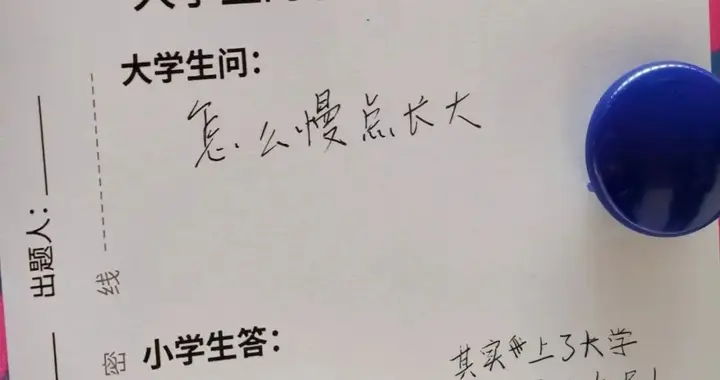 大学生问：
怎么慢点长大
出题人：
线
密
小学生答：
其实上了大学